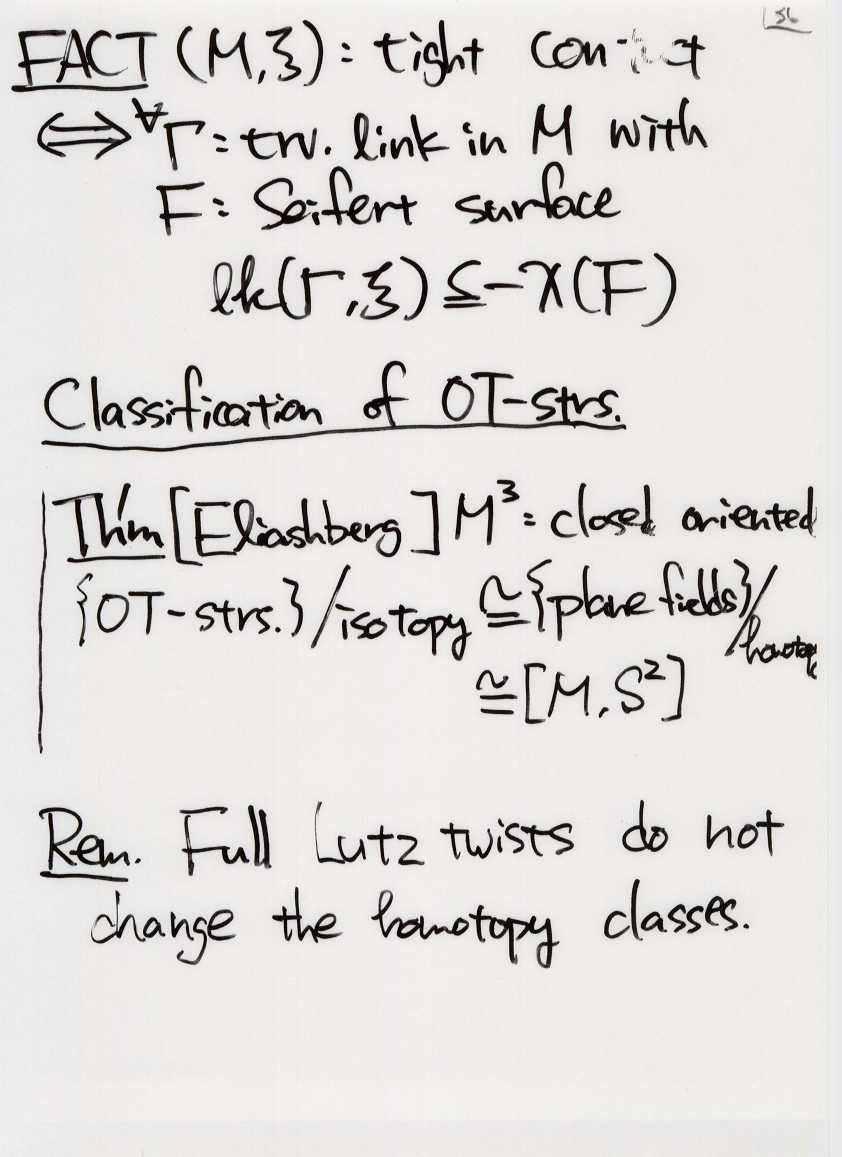 36
FACT (M,ξ) : tight contact
⟺ ∀Γ : trv. link in M with
F : Seifert surface
lk(Γ,ξ) ≤ -χ(F)
Classification of OT-strs.
Thm [Eliashberg] M³ : closed oriented
{OT-strs.}/isotopy ≅ {plane fields}/homotopy
≅ [M, S²]
Rem. Full Lutz twists do not
change the homotopy classes.